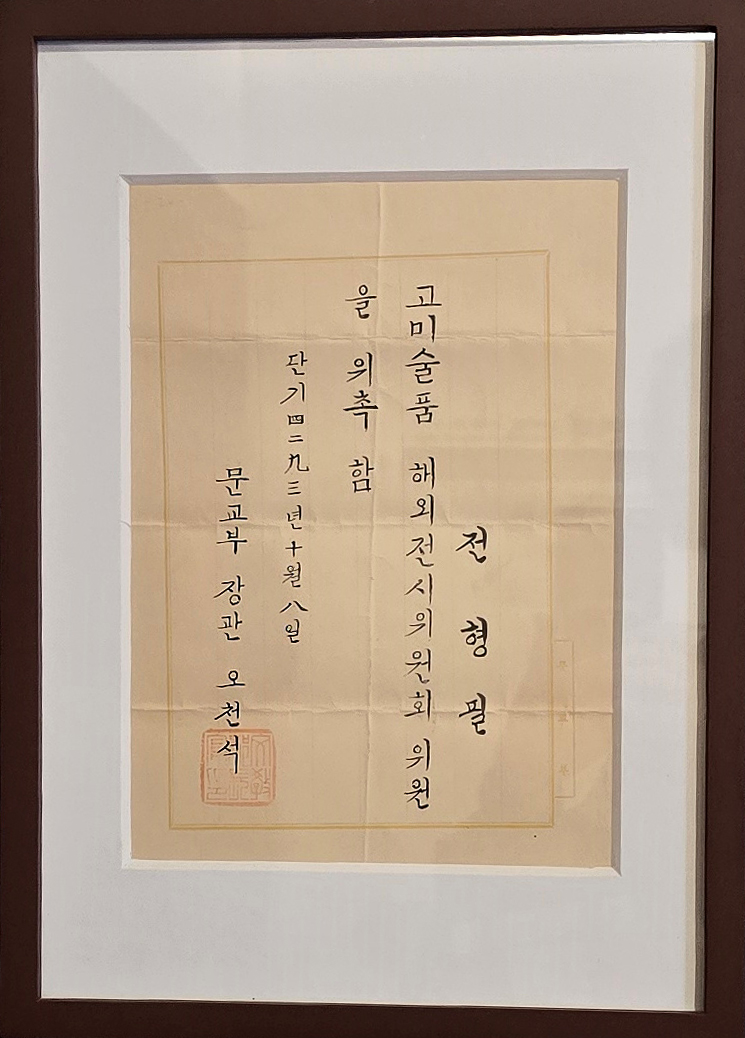 전형필
고미술품 해외전시위원회 위원
을 위촉함
단기四二九三년十월八일
문교부 장관 오천석
문교부